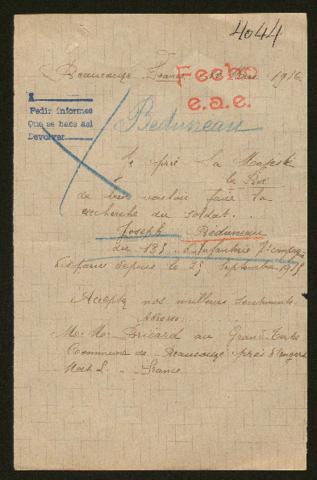 4044
Beaucouzé France 1916
Fecho
e.a.e.
Pedir informes
Que se hace asi
Devolver
Beduneau
Je prie Sa Majesté
le Roi
de bien vouloir faire la
recherche du soldat
Joseph Beduneau
du 135 d'Infanterie 7e compagnie
disparu depuis le 25 Septembre 1915
Acceptez nos meilleurs sentiments
M. Me Bricard au Grand
Commune de Beaucouzé près d'Angers
France